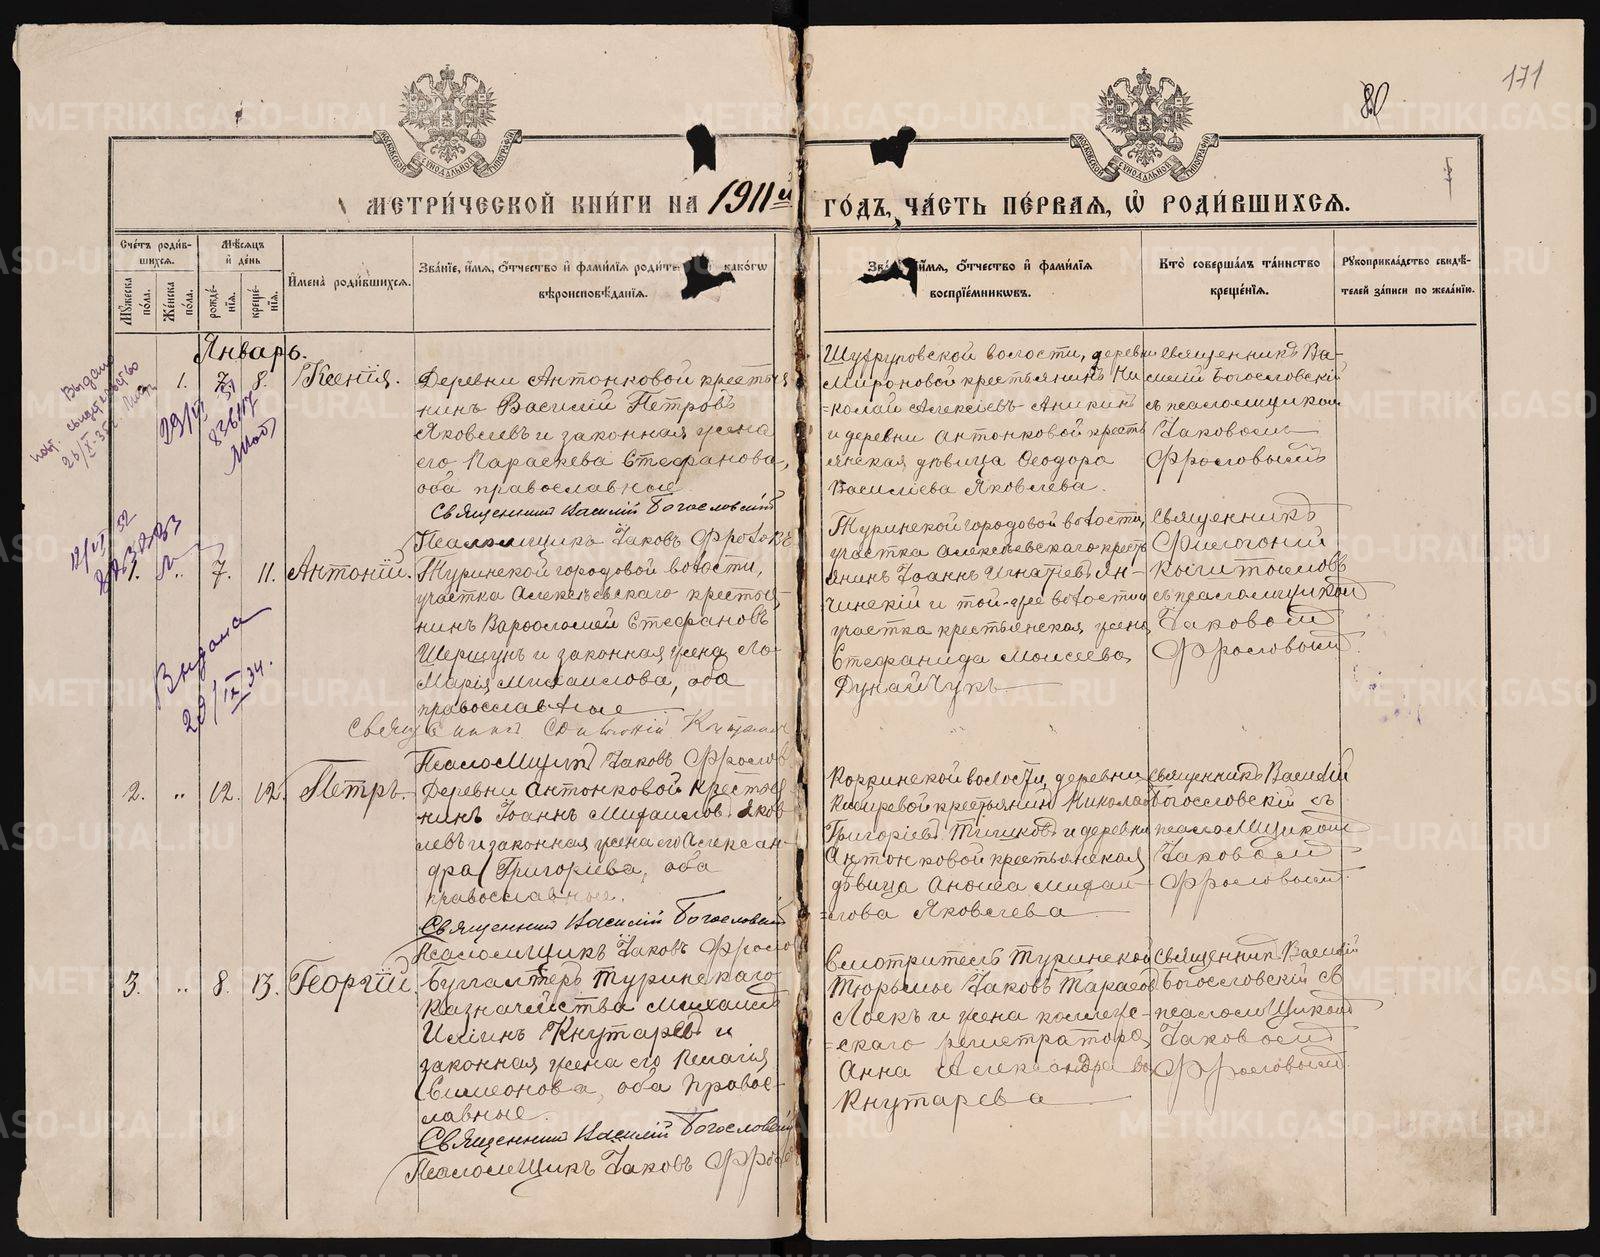 171
80
МОСКОВСКОЙ СѴНОДАЛЬНОЙ ТИПОГРАФІИ
МОСКОВСКОЙ СѴНОДАЛЬНОЙ ТИПОГРАФІИ
МЕТРИ́ЧЕСКОЙ КНИ́ГИ НА 1911й ГО́ДЪ, ЧА́СТЬ ПЕ́РВАЯ, Ѡ РОДИ́ВШИХСЯ.
Сче́тъ роди́в-
шихся.
Мꙋ́жеска по́ла.
Же́нска по́ла.
Мѣ́сяцъ и де́нь
рожде́нїя.
креще́нїя.
И́мена̀ роди́вшихся.
Зва́нїе, и́мя, о́тчество и фами́лїя роди́те како́гѡ
вѣроисповѣ́данїя.
Зва и́мя, о́тчество и фами́лїя
воспрїе́мникѡвъ.
Кто̀ соверша́лъ та́инство
креще́нїя.
Рꙋкоприкла́дство свидѣ́-
телей за́писи по жела́нїю.
Январь.
1. 7. 8. Ксенія.
Деревни Антонковой крестья
нинъ Василій Петровъ
Яковлевъ и законная жена
его Параскева Стефанова,
оба православные
Священникъ Василій Богословскій
Псаломщикъ Іаковъ Фроловъ
деревни
Мироновой крестьянинъ Ни
=колай Алексіевъ Аникинъ
и деревни Антонковой кресть
янская дѣвица Ѳеодора
Василіева Яковлева.
Священникъ Ва-
силій Богословскій
съ псаломщикомъ
Іаковомъ
Фроловымъ
Выдано
29/VI
12/VI 52
1. " 7. 11. Антоній.
Туринской городовой волости,
участка Алексѣевскаго крестья
нинъ Варѳоломей Стефановъ
Шершунъ и законная жена его
Марія Михаилова, оба
православные
Псаломщикъ Іаковъ Фролов
Туринской городовой волости,
участка Алексѣевскаго кресть
янинъ Іоаннъ Игнатіевъ Ян-
чинскій и той-же волости
участка крестьянская жена
Стефанида Моисеева
Дунайчукъ
Священникъ
Филогоній
Копытовъ
съ псаломщикомъ
Іаковомъ
Фроловымъ.
Выдана
29/IX 34.
2. " 12. 12. Петръ.
Деревни Антонковой крестья
нинъ Іоаннъ Михаилов. Яков
левъ и законная жена его Алексан-
дра Григоріева, оба
православные.
Священникъ Василій Богословскій
Псаломщикъ Іаковъ Фролов
Коркинской волости, деревни
крестьянинъ Николай
Григоріевъ Тишковъ и деревни
Антонковой крестьянская
дѣвица Анфиса Михаи-
=лова Яковлева
Священникъ Василій
Богословскій съ
псаломщикомъ
Іаковомъ
Фроловымъ.
3. " 8. 13. Георгій.
Бухгалтеръ Туринскаго
Казначейства Михаилъ
Иліинъ Кнутаревъ и
законная жена его Пелагія
Симеонова, оба правос-
лавные.
Священникъ Василій Богословскій
Псаломщикъ Іаковъ Фролов
Смотритель Туринской
Тюрьмы Іаковъ Тарасов
Лоекъ и жена коллеже-
=скаго регистратора
Анна Александрова
Кнутарева
Священникъ Василій
Богословскій съ
псаломщикомъ
Іаковомъ
Фроловымъ
METRIKI.GASO-URAL.RU